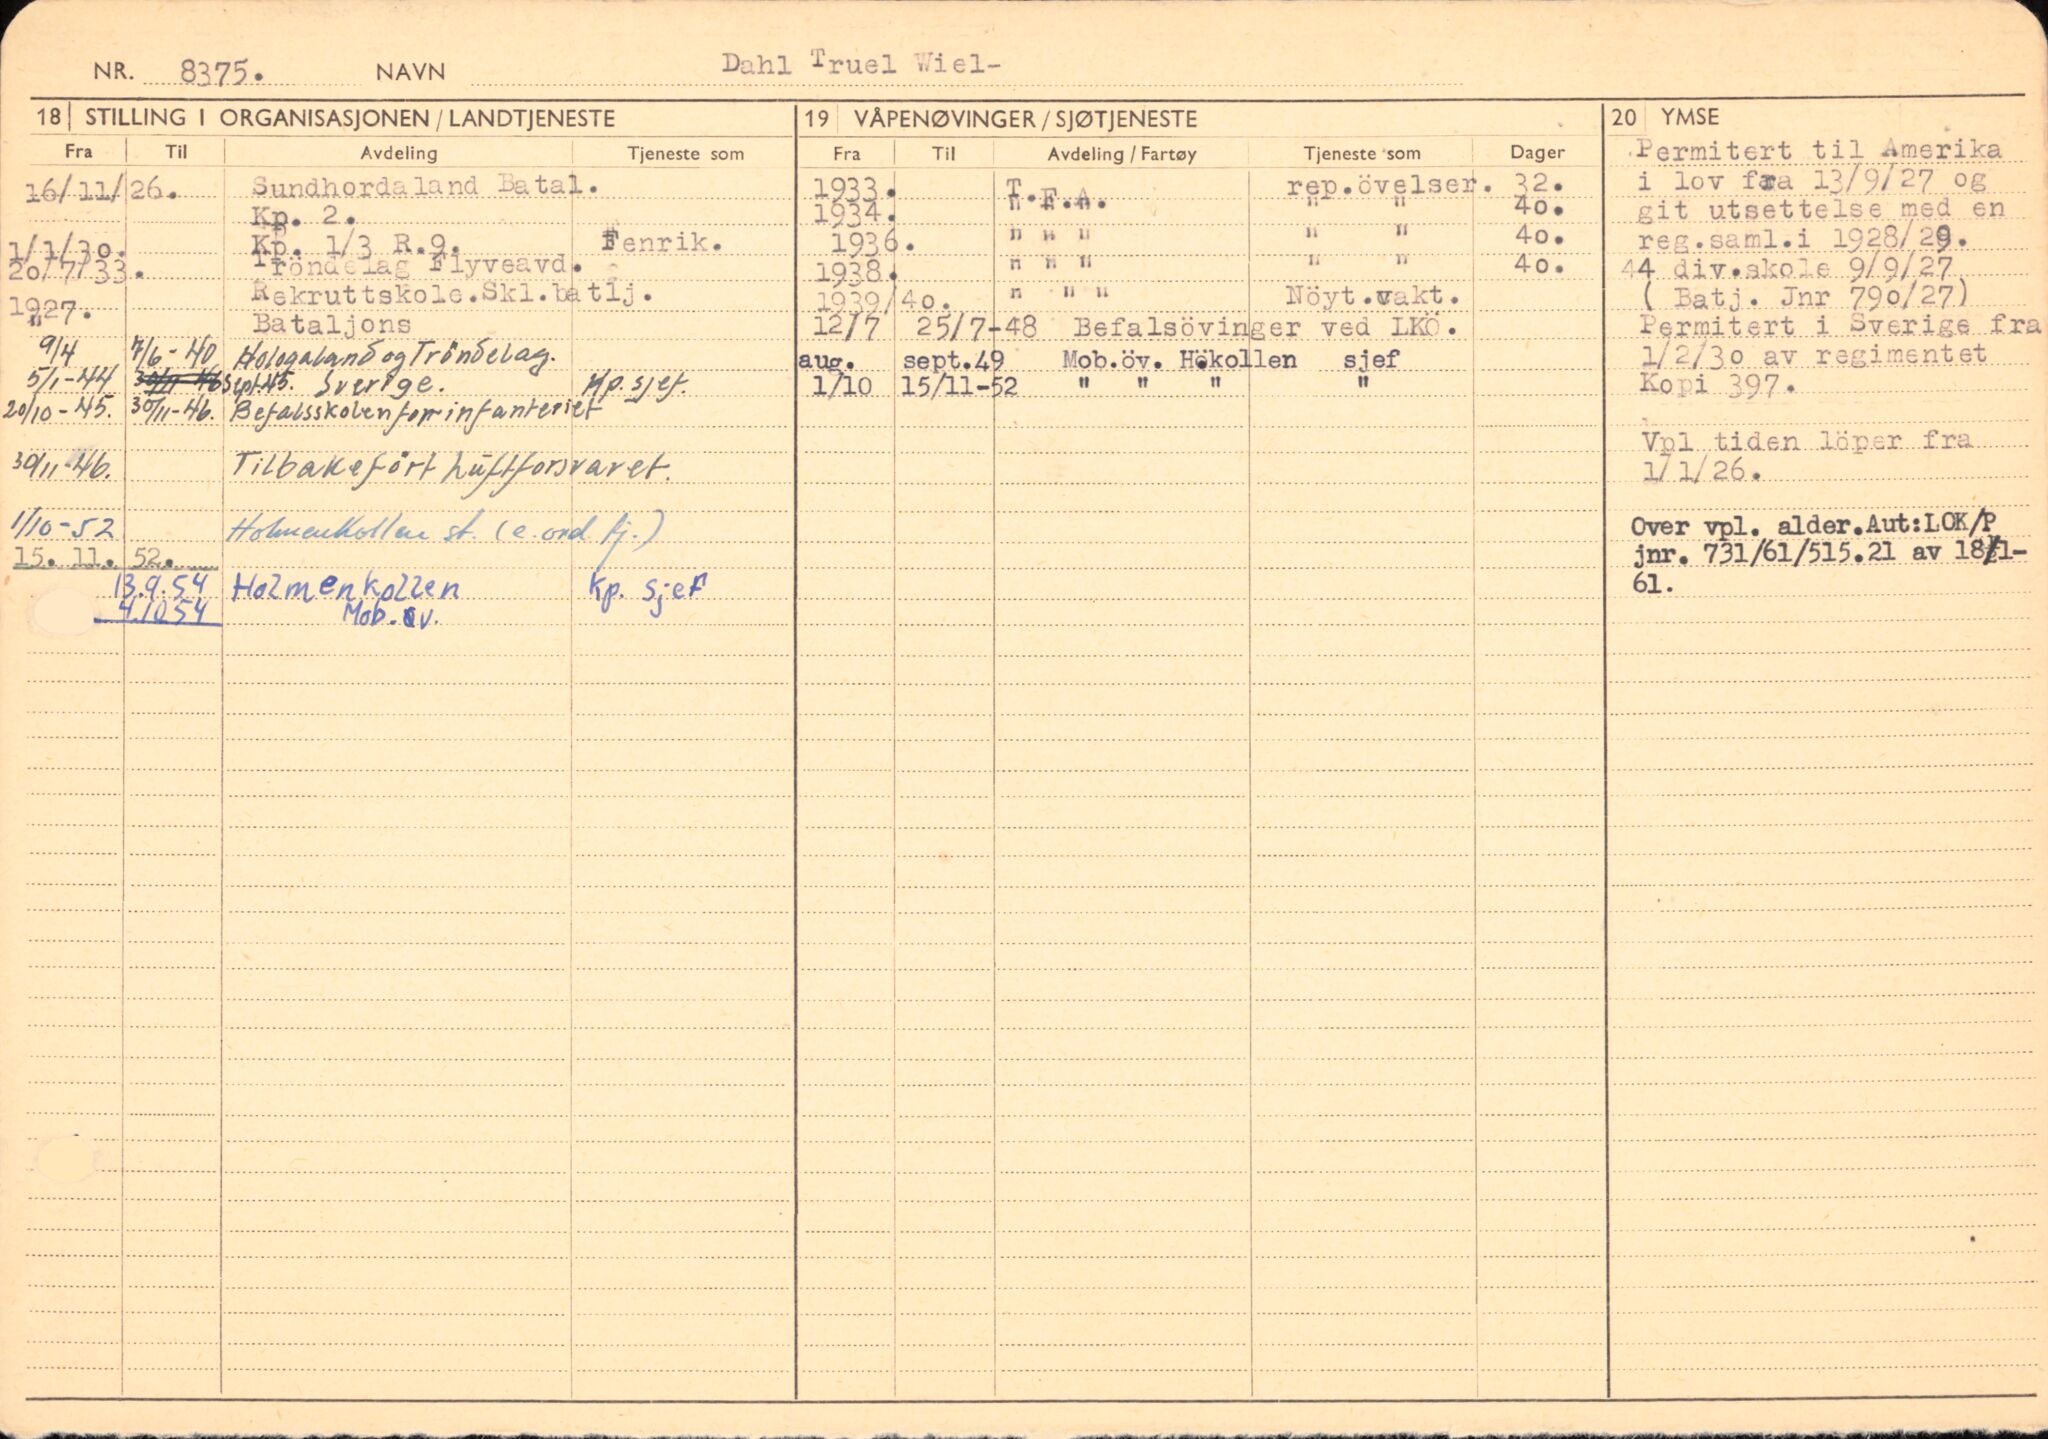 NR. 8375. NAVN Dahl Truel Wiel-
18 STILLING I ORGANISASJONEN / LANDTJENESTE
Fra Til Avdeling Tjeneste som
16/11/26. Sundhordaland Batal.
Kp. 2.
1/1/30. Kp. 1/3 R.9. Fenrik.
20/7/33. Tröndelag Flyveavd.
1927. Rekruttskole.Skl.batlj.
" Bataljons
9/4 7/6-40 Hologaland og Tröndelag.
5/1-44 Sept.45. Sverige. Kp. sjef.
20/10-45. 30/11-46. Befalsskolen for infanteriet
30/11-46. Tilbakefört Luftforsvaret.
1/10-52 Holmenkollen st. (e. ord. tj.)
15. 11. 52.
13.9.54 Holmenkollen Kp. sjef
4.10 54 Mob. öv.
19 VÅPENØVINGER / SJØTJENESTE
Fra Til Avdeling / Fartøy Tjeneste som Dager
1933. T.F.A. rep.övelser. 32.
1934. " " " " " 40.
1936. " " " " " 40.
1938. " " " " " 40.
1939/40. " " " Nöyt.vakt.
12/7 25/7-48 Befalsövinger ved LKÖ.
aug. sept.49 Mob.öv. Hökollen sjef
1/10 15/11-52 " " " "
20 YMSE
Permitert til Amerika
i lov fra 13/9/27 og
git utsettelse med en
reg.saml.i 1928/29.
44 div.skole 9/9/27
( Batj. Jnr 790/27)
Permitert i Sverige fra
1/2/30 av regimentet
Kopi 397.
Vpl tiden löper fra
1/1/26.
Over vpl. alder.Aut:LOK/P
jnr. 731/61/515.21 av 18/1-
61.